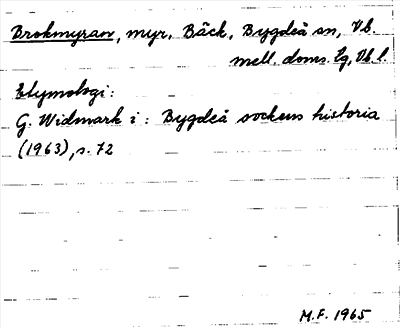 Brokmyran, myr, Bäck, Bygdeå sn, Vb.
mell. doms. tg, Vb. l.
Etymologi:
G. Widmark i: Bygdeå sockens historia
(1963), s. 72
M.F. 1965